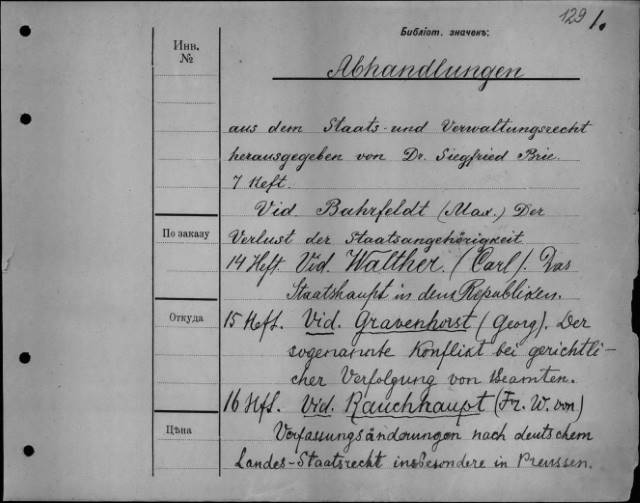 129 1.
Библіот. значекъ:
Инв.
№
Abhandlungen
aus dem Staats- und Verwaltungsrecht
herausgegeben von Dr. Siegfried Brie.
7 Heft.
Vid. Bahrfeldt (Max.) Der
По заказу
Verlust der Staatsangehörigkeit
14 Heft. Vid. Walther. (Carl). Das
Staatshaupt in den Republiken.
Откуда
15 Heft. Vid. Gravenhorst (Georg). Der
sogenannte Konflikt bei gerichtli-
cher Verfolgung von Beamten.
16 Hft. Vid. Rauchhaupt (Fr. W. von)
Цѣна
Verfassungsänderungen nach deutschem
Landes-Staatsrecht insbesondere in Preussen.